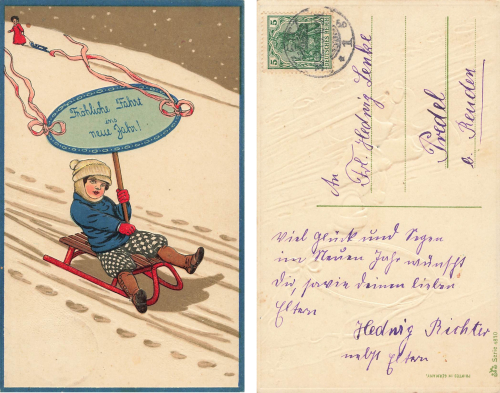 Fröhliche Fahrt
ins
neue Jahr!
5 5
An
Frl. Hedwig Lenke
Predel
b. Reuden
Viel Glück und Segen
im Neuen Jahr wünscht
Dir, sowie deinen lieben
Eltern
Hedwig Richter
nebst Eltern
Serie